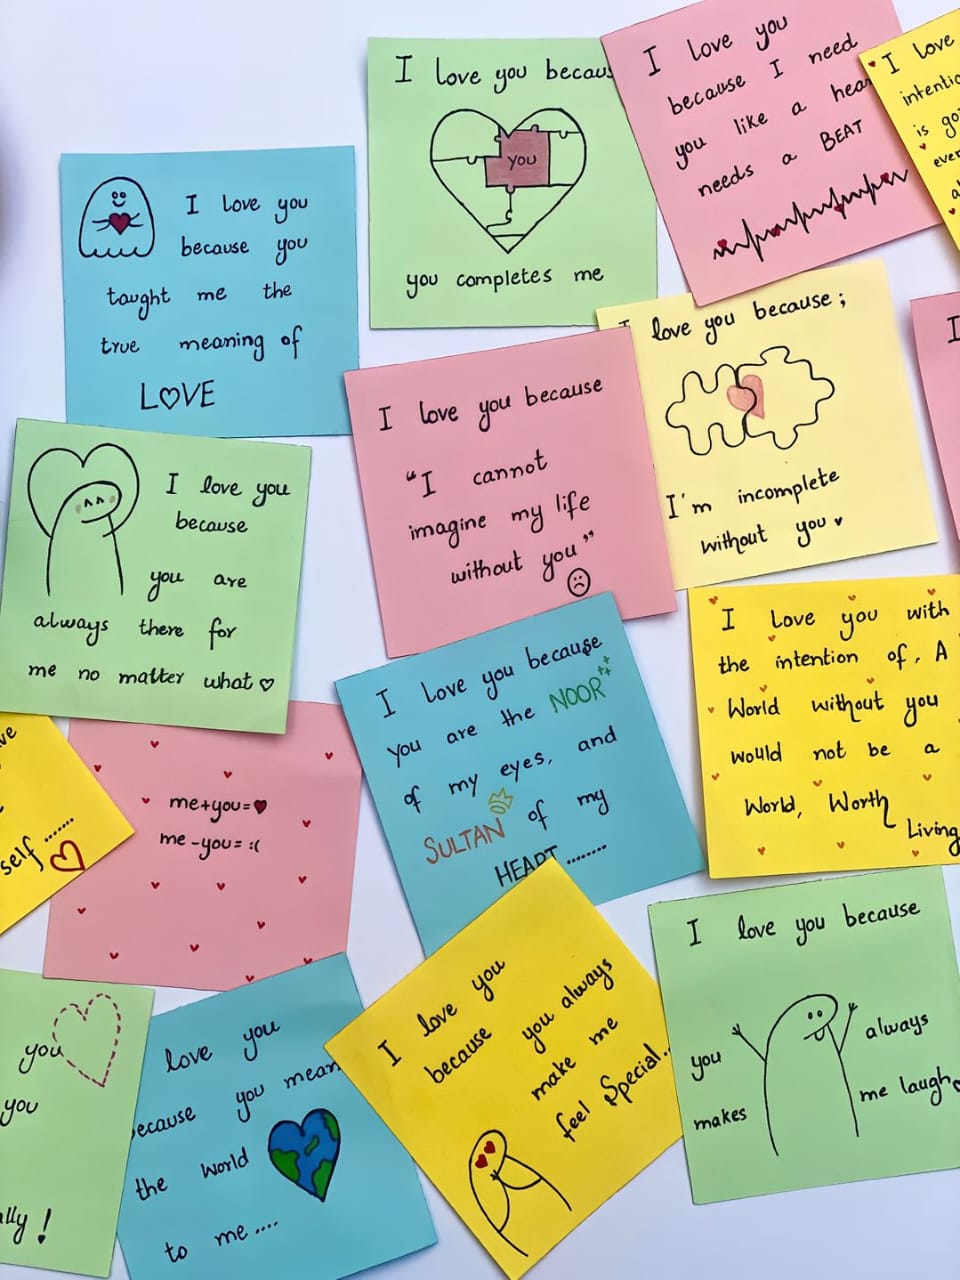 I love you
because you
taught me the
true meaning of
LOVE
I love you
you
you completes me
I love you
because I need
you like a
needs a BEAT
I love
is
I love you because;
I'm incomplete
without you
I love you because
"I cannot
imagine my life
without you"
I
I love you
because
you are
always there for
me no matter what
me+you=♥
me-you= :(
I love you because
you are the NOOR
of my eyes, and
SULTAN of my
HEART........
I love you with
the intention of, A
World without you
would not be a
World, Worth
Living
self.......
you
you
!
love you
you mean
the world
to me....
I love you
because you always
make me
feel Special..
I love you because
you always
makes me laugh